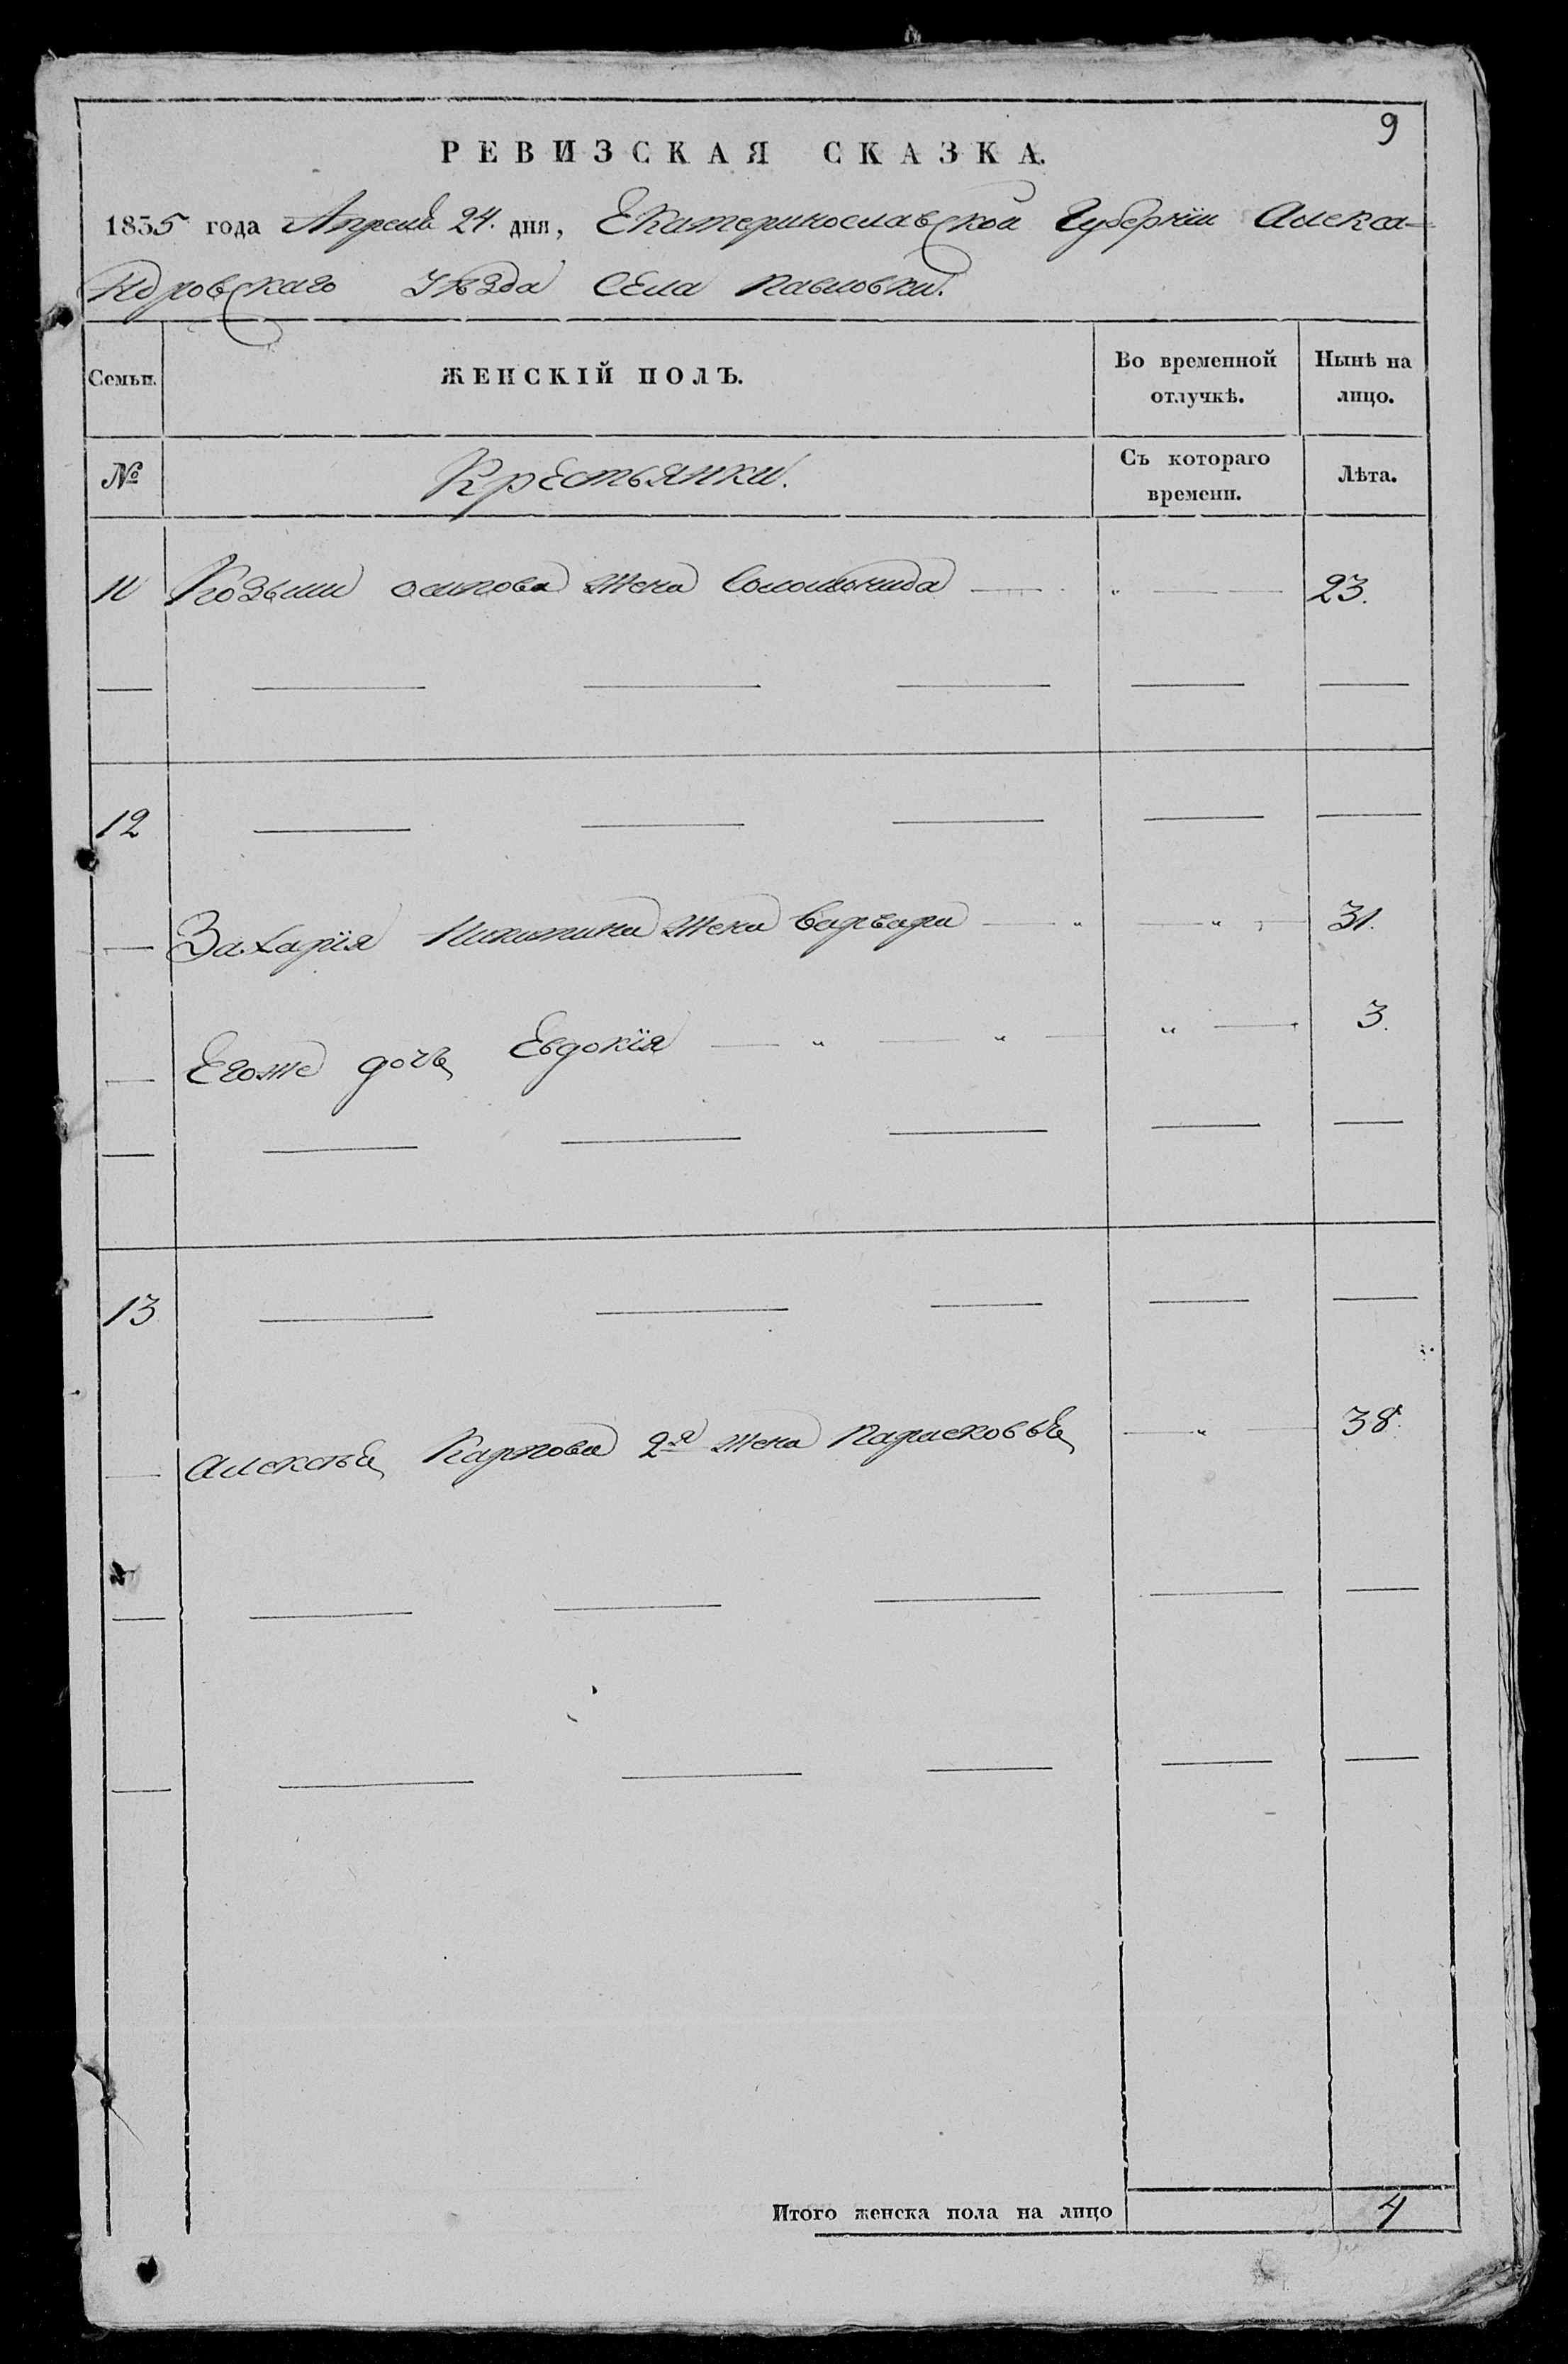 9
РЕВИЗСКАЯ СКАЗКА.
1835 года Апреля 24. дня, Екатеринославской Губернїи Алекса-
ндровскаго Уѣзда Села Павловки.
Семьи. ЖЕНСКІЙ ПОЛЪ. Во временной отлучкѣ. Нынѣ на лицо.
№ Крестьянки. Съ котораго времени. Лѣта.
11 Козьми осипова жена Соломонида 23.
12
Захарїя Никитина жена Варвара 31.
Егоже дочь Евдокїя 3.
13
Алексѣя Карпова 2я жена Парасковья 38.
Итого женска пола на лицо 4